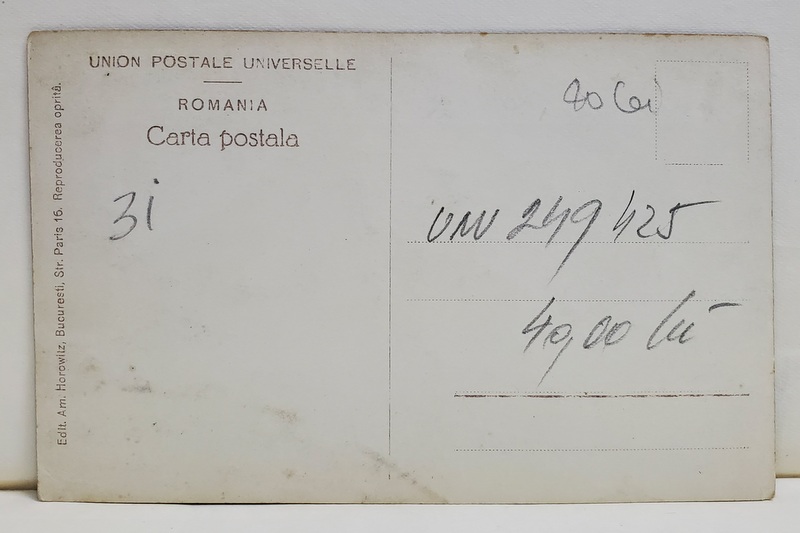 UNION POSTALE UNIVERSELLE
ROMANIA
Carta postala
Edit. Am. Horowitz, Bucuresti, Str. Paris 16. Reproducerea oprită.
80 lei
3i
249 425
40,00 lei